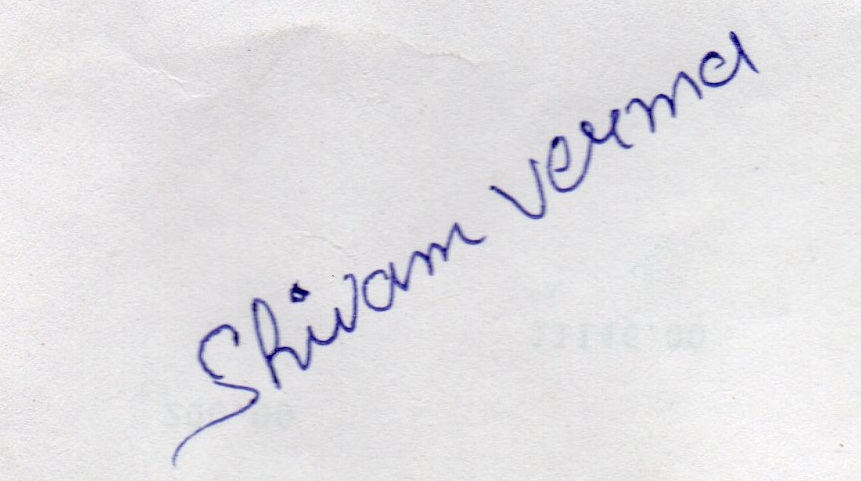 Shivam Verma